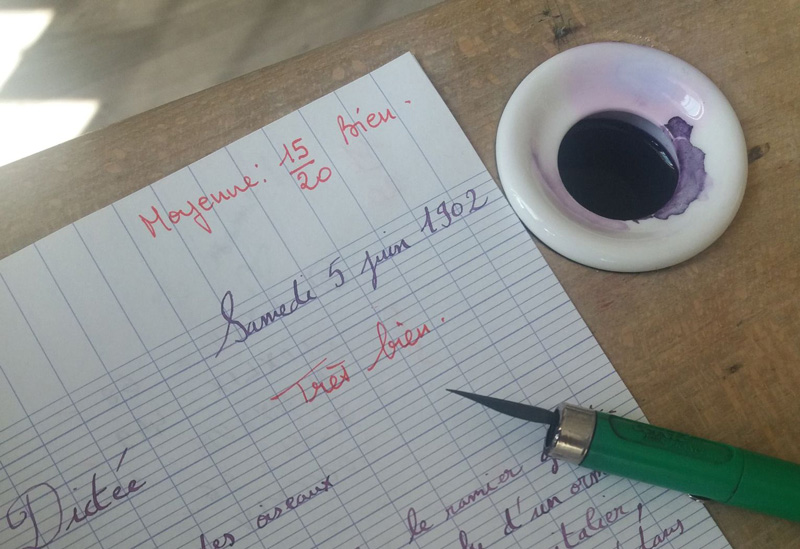 Moyenne: 15/20 bien.
Samedi 5 juin 1902
Très bien.
Dictée
des oiseaux
le ramier
d'un
dans